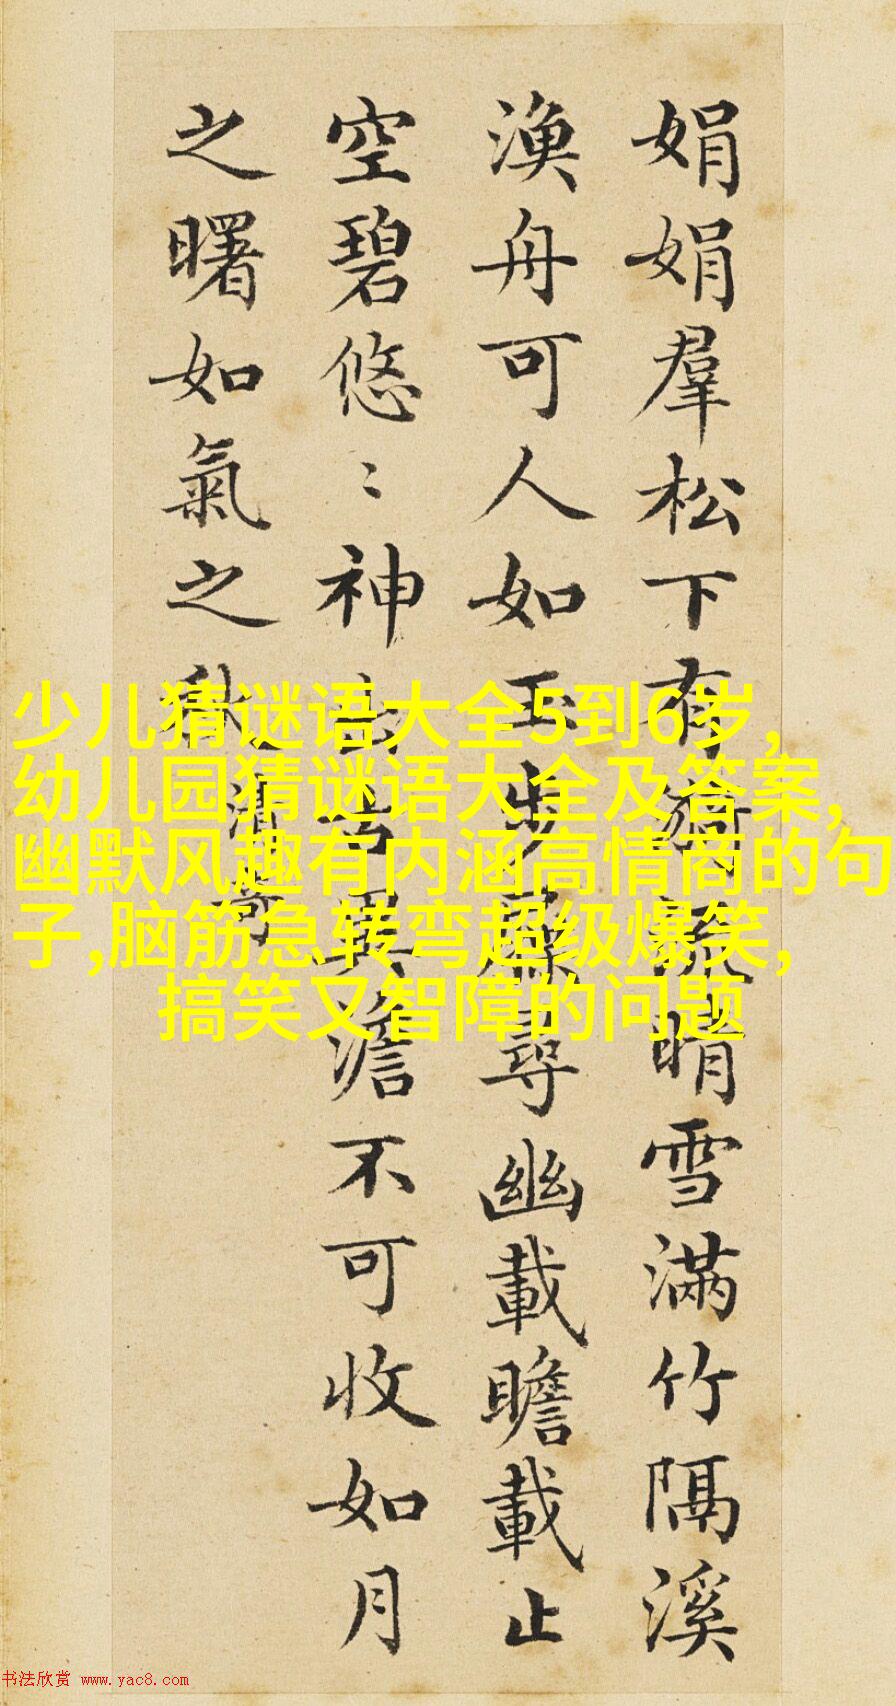 娟娟羣松下有漪流晴雪滿竹隔溪
漁舟可人如玉步屧尋幽載瞻載止
空碧悠〻神出古異澹不可收如月
之曙如氣之秋
清奇
少儿猜谜语大全5到6岁,
幼儿园猜谜语大全及答案,
幽默风趣有内涵高情商的句
子,脑筋急转弯超级爆笑,
搞笑又智障的问题
书法欣赏 www.yac8.com